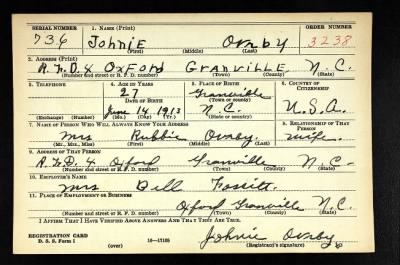 SERIAL NUMBER 1. NAME (Print) ORDER NUMBER
736 Johnie Ovnby 3238
(First) (Middle) (Last)
2. ADDRESS (Print)
R.F.D. 4 OXFORD GRANVILLE N.C.
(Number and street or R. F. D. number) (Town) (County) (State)
3. TELEPHONE 4. AGE IN YEARS 5. PLACE OF BIRTH 6. COUNTRY OF CITIZENSHIP
27 Granville
DATE OF BIRTH (Town or county)
June 14 1913 N.C. U.S.A.
(Exchange) (Number) (Mo.) (Day) (Yr.) (State or country)
7. NAME OF PERSON WHO WILL ALWAYS KNOW YOUR ADDRESS 8. RELATIONSHIP OF THAT PERSON
Mrs Rubbie Ovnby. Wife.
(Mr., Mrs., Miss) (First) (Middle) (Last)
9. ADDRESS OF THAT PERSON
R.F.D. 4 Oxford Granville N.C.
(Number and street or R. F. D. number) (Town) (County) (State)
10. EMPLOYER'S NAME
Mrs Dell
11. PLACE OF EMPLOYMENT OR BUSINESS
Oxford Granville N.C.
(Number and street or R. F. D. number) (Town) (County) (State)
I AFFIRM THAT I HAVE VERIFIED ABOVE ANSWERS AND THAT THEY ARE TRUE.
REGISTRATION CARD Johnie Ovnby
D. S. S. Form 1 (over) 16—17105 (Registrant's signature)